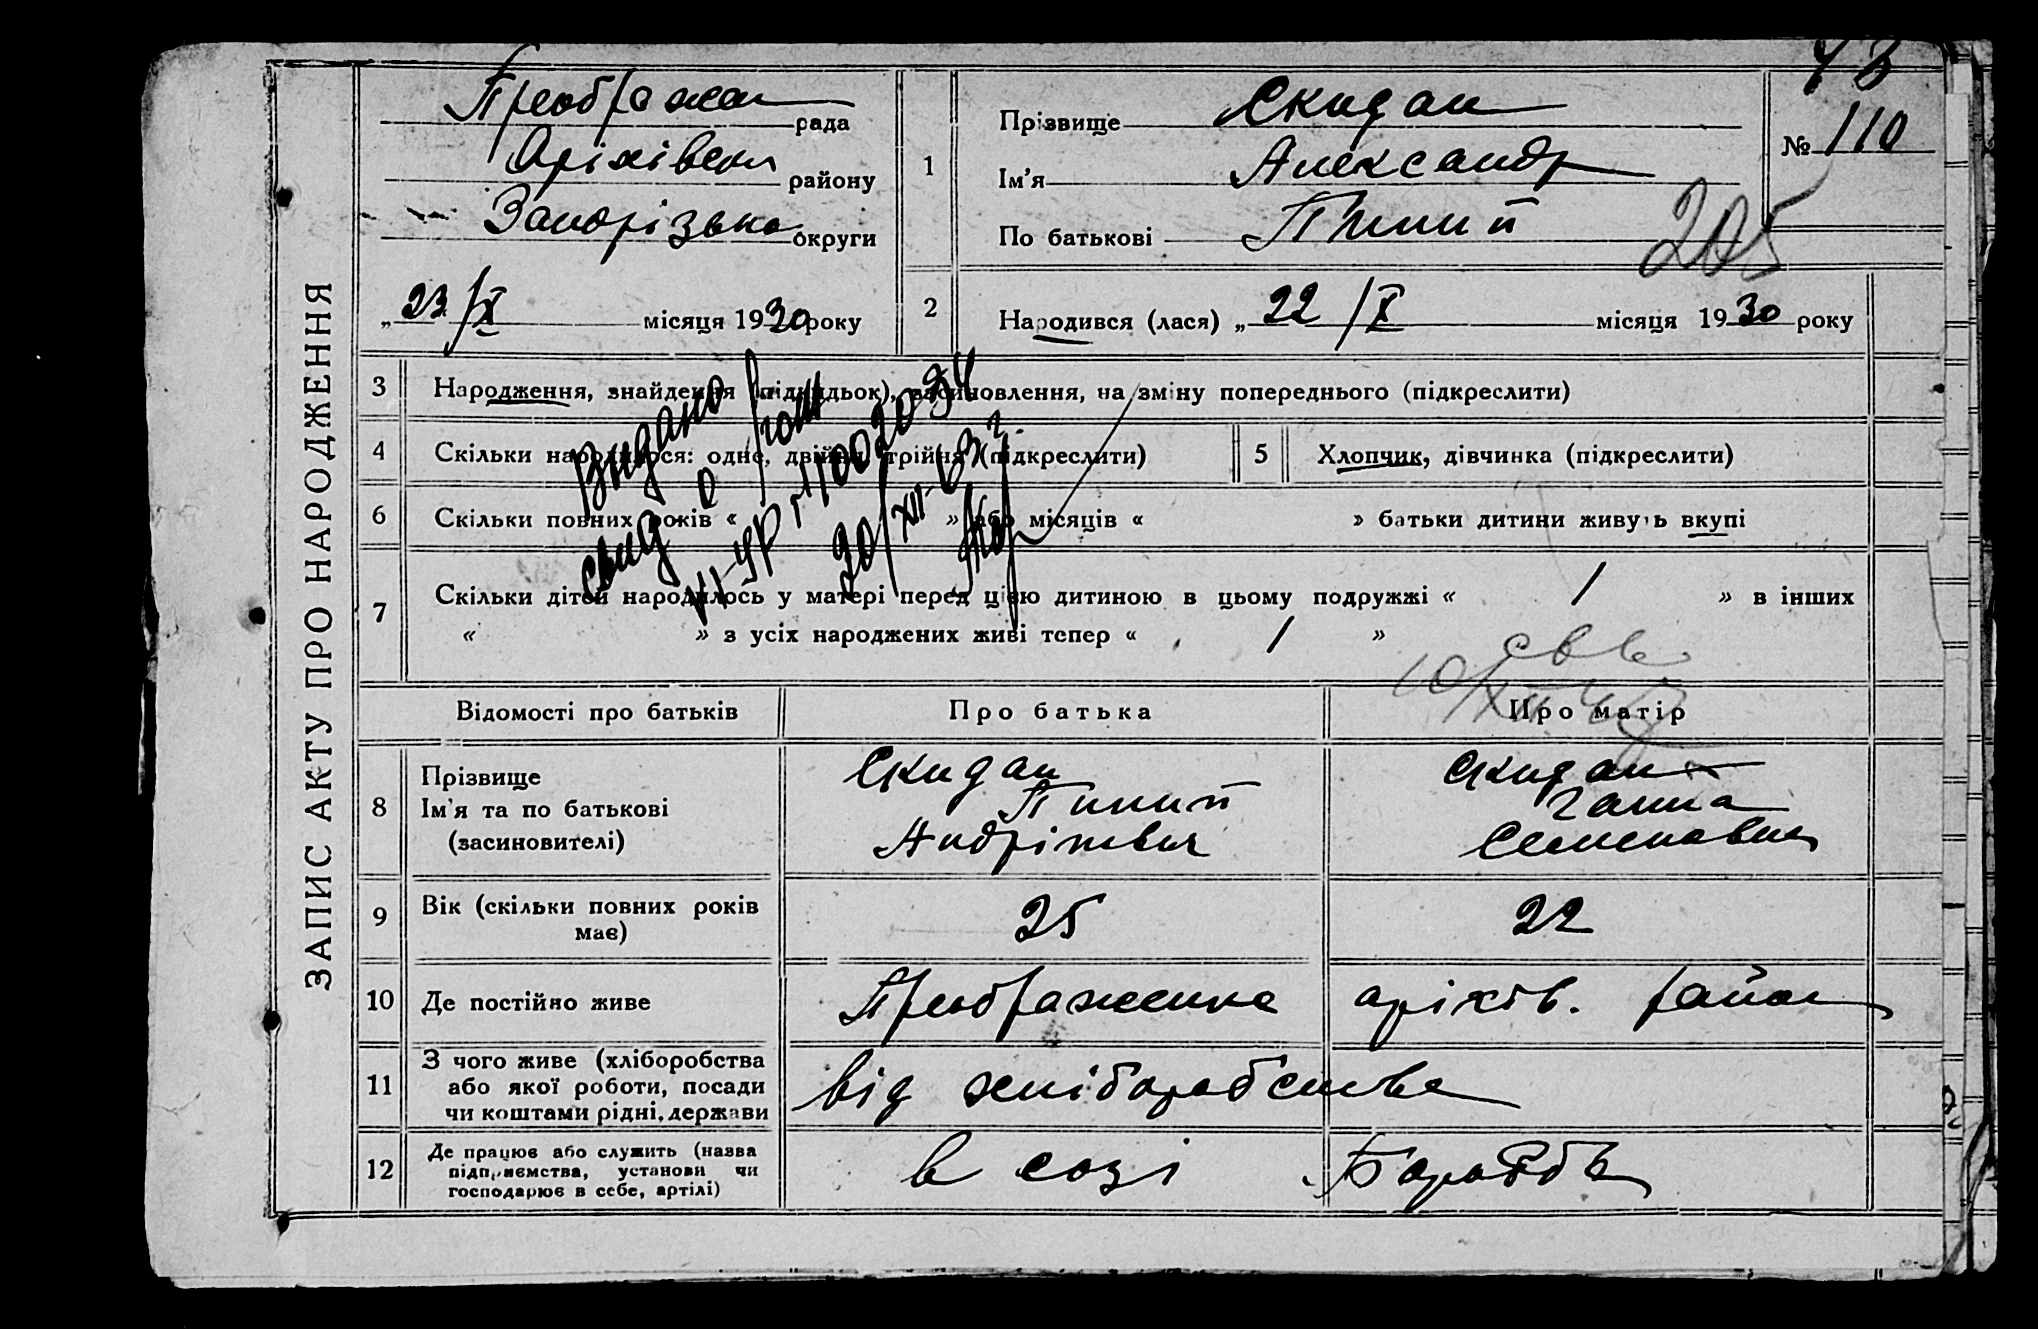 ЗАПИС АКТУ ПРО НАРОДЖЕННЯ
Преображен рада
Оріхівськ району
Запорізько округи
„23/X місяця 1930 року
1
Прізвище Скидан
Ім'я Александр
По батькові Пилип
№ 110
205
2
Народився (лася) „22/X місяця 1930 року
3 Народження, знайдення (підкидьок), всиновлення, на зміну попереднього (підкреслити)
4 Скільки народилося: одне, двійня, трійня (підкреслити)
5 Хлопчик, дівчинка (підкреслити)
6 Скільки повних років « » або місяців « » батьки дитини живуть вкупі
7 Скільки дітей народилось у матері перед цією дитиною в цьому подружжі « 1 » в інших
« » з усіх народжених живі тепер « 1 »
Видано
свид о
20/XII-63 г.
Відомості про батьків Про батька Про матір
8 Прізвище
Ім'я та по батькові
(засиновителі)
Скидан
Пилип
Андріївич
Скидан
Ганна
Семеновна
9 Вік (скільки повних років
має)
25 22
10 Де постійно живе Преображенка оріхів. район
11 З чого живе (хліборобства
або якої роботи, посади
чи коштами рідні, держави
від хліборобства
12 Де працює або служить (назва
підприємства, установи чи
господарює в себе, артілі)
в созі